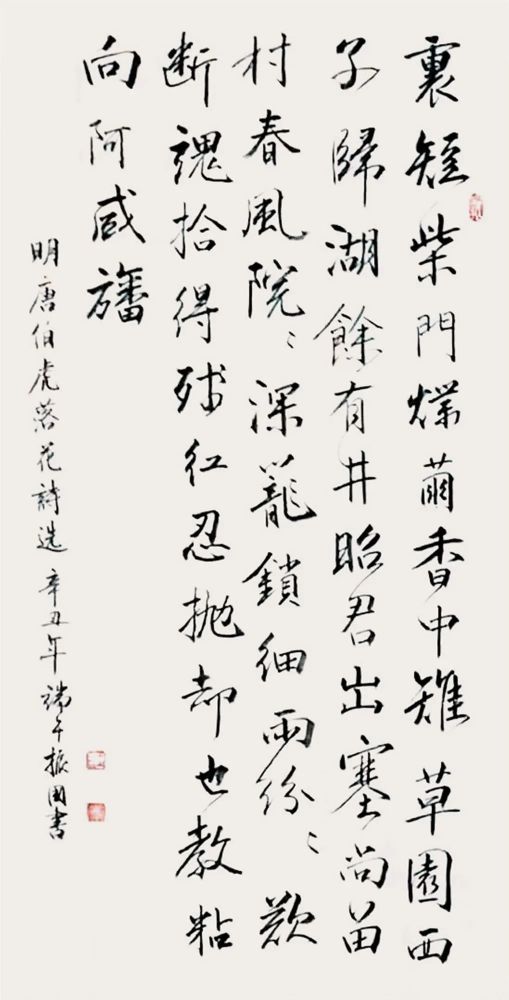 裏短柴門煠繭香中雉草園西
子歸湖餘有井昭君出塞尚留
村春風院〻深籠鎖細雨紛〻欲
断魂拾得殘红忍抛却也教粘
向阿咸旛
明唐伯虎落花詩选 辛丑年端午振國書